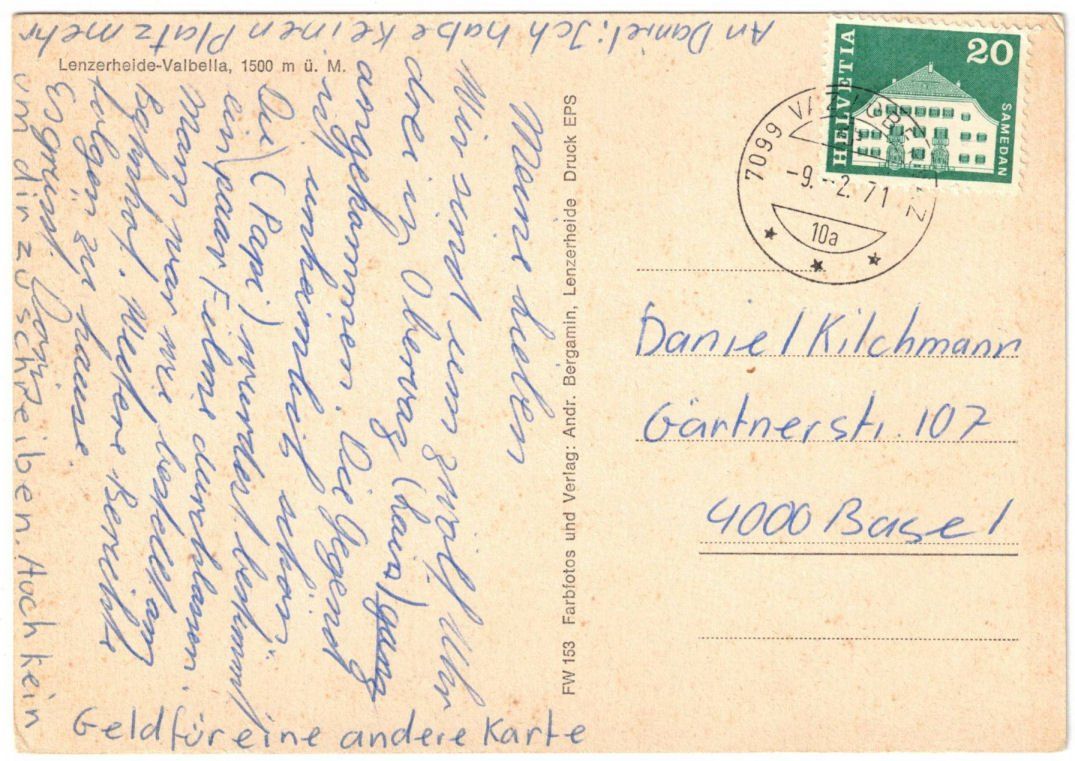 Lenzerheide-Valbella, 1500 m ü. M.
Meine lieben
Wir sind um zwölf Uhr
doe in Obervaz (Lain) gang
angekommen. Die Gegend
ist unheimlich schön
Du (Papi) würdest bestimmt
ein paar Filme durchlassen.
Mann war wie bestellt am
Bahnhof. Weitere Berichte
folgen zu hause.
Es grüsst
An Daniel: Ich habe keinen Platz mehr
um dir zu schreiben. Auch kein
Geld für eine andere Karte
FW 153 Farbfotos und Verlag: Andr. Bergamin, Lenzerheide Druck EPS
HELVETIA
20
SAMEDAN
7099
-9.-2.71
10a
Daniel Kilchmann
Gärtnerstr. 107
4000 Basel